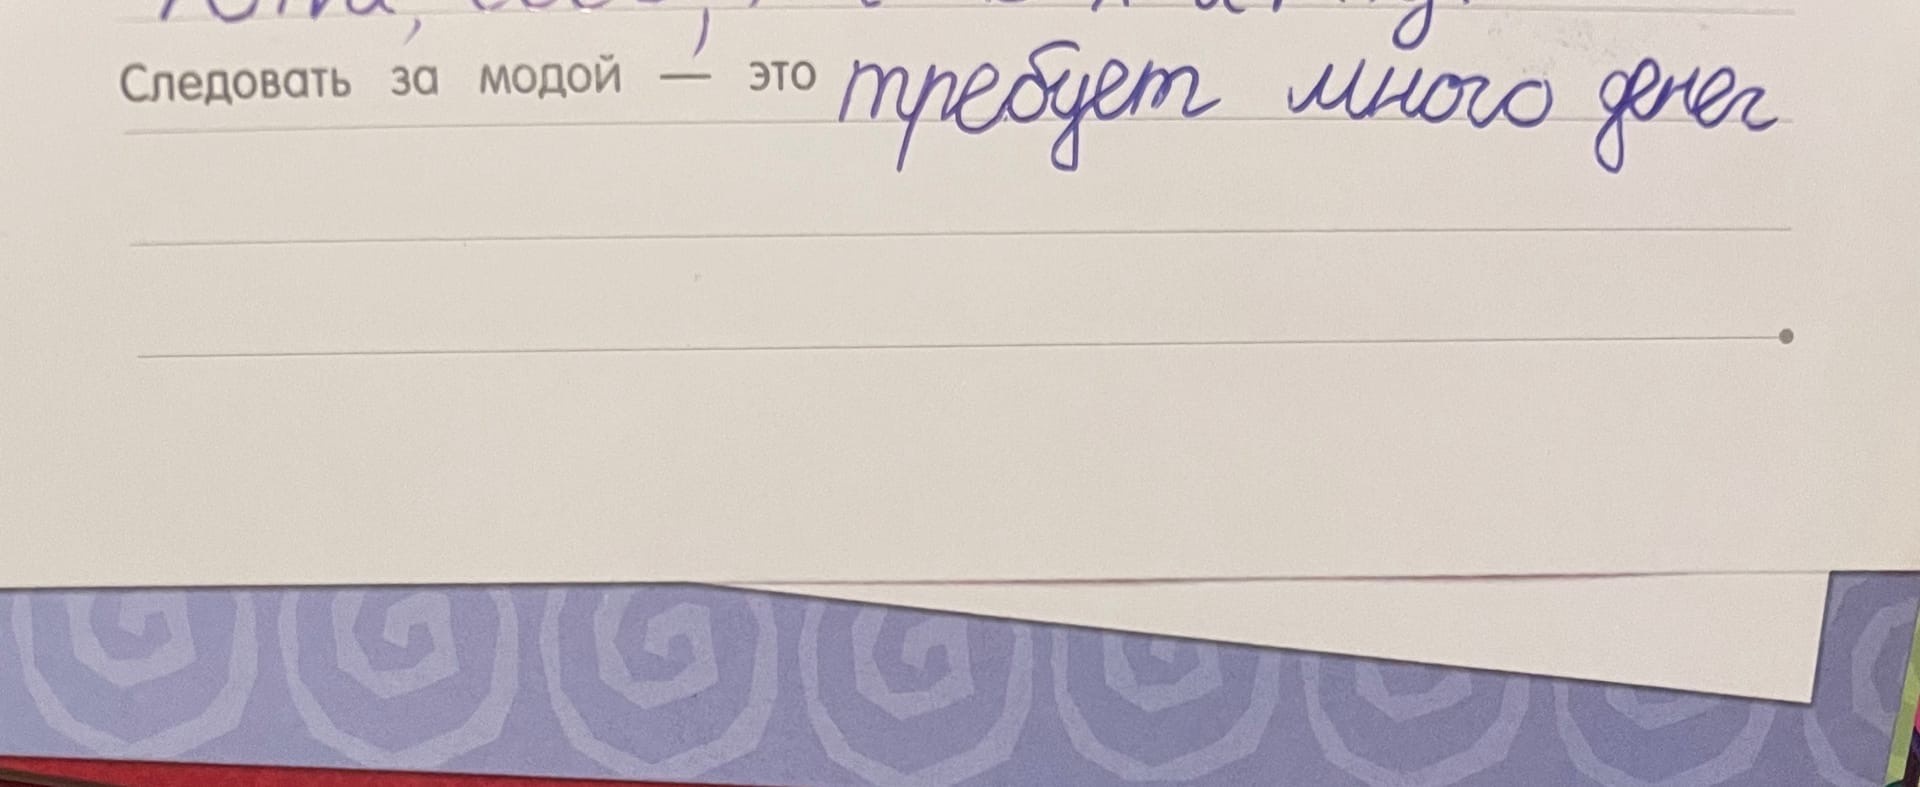 Следовать за модой — это требует много денег